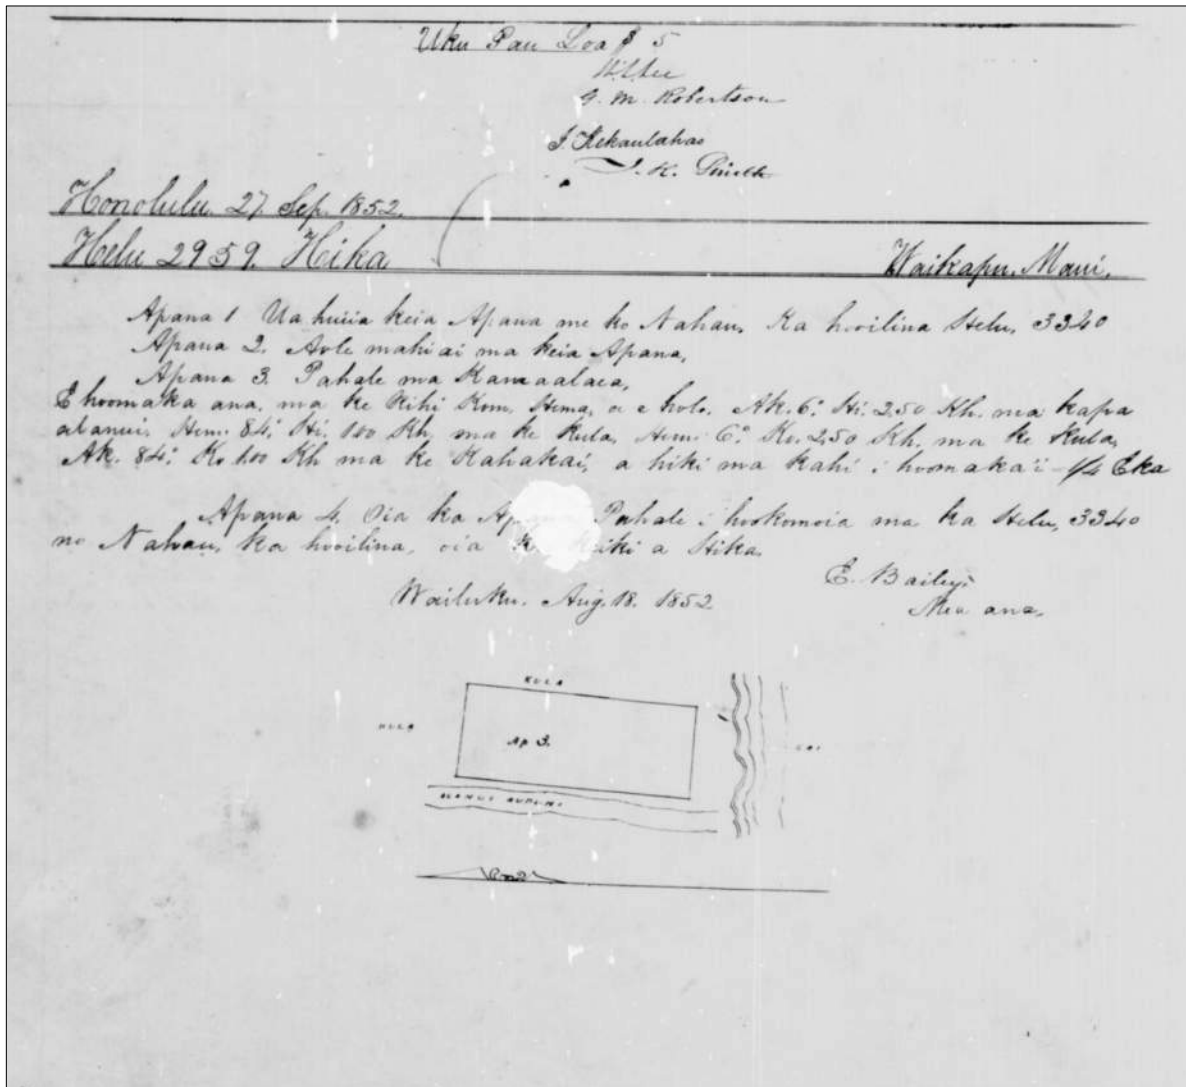 Uku Pau Loa $ 5
W. L. Lee
G. M. Robertson
J. Kekaulahao
J. H. Smith
Honolulu. 27. Sep. 1852.
Helu 2959. Hika Waikapu. Maui.
Apana 1 Ua huiia keia Apana me ko Nahau, Ka hooilina Helu, 3340
Apana 2. Aole mahiai ma keia Apana,
Apana 3. Pahale ma Kamaalaea,
E hoomaka ana, ma ke Kihi Kom. Hema, a e holo. Ak. 6.° Hi. 2.50 Kh. ma kapa
alanui. Hem. 84.° Hi. 1.00 Kh. ma ke kula, Hem. 6.° Ko. 2.50 Kh. ma ke Kula,
Ak. 84.° Ko. 1.00 Kh ma ke Kahakai, a hiki ma kahi i hoomaka'i 1/4 Eka
Apana 4. Oia ka Pahale i hookomoia ma ka Helu, 3340
no Nahau, ka hooilina, oia keiki a Hika.
E. Bailey.
Wailuku. Aug. 18. 1852. Mea ana.
KULA
KULA Ap 3. KAI
ALANUI AUPUNI